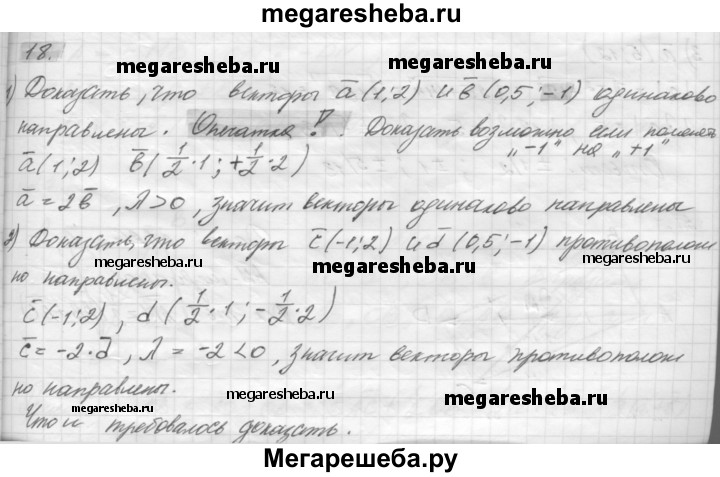 megaresheba.ru
18.
megaresheba.ru
1) Доказать, что векторы a̅ (1;2) и b̅ (0,5;-1) одинаково
направлены. Опечатка!. Доказать возможно если поменять
„-1" на „+1"
a̅(1;2) b̅(1/2·1; +1/2·2)
a̅ = 2b̅, λ>0, значит векторы одинаково направлены
2) Доказать, что векторы c̅(-1;2) и d̅ (0,5;-1) противополож
но направлены.
megaresheba.ru megaresheba.ru
c̅(-1;2), d(1/2·1; -1/2·2)
c̅ = -2·d̅, λ = -2<0, значит векторы противополож
но направлены.
megaresheba.ru megaresheba.ru megaresheba.ru
Что и требовалось доказать.
Мегарешеба.ру